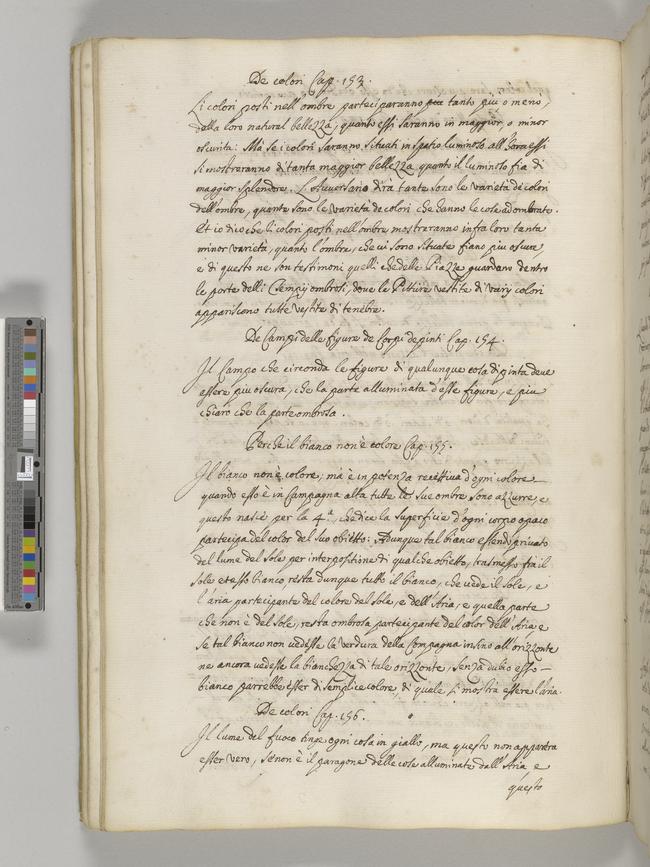 De colori Cap. 153.
Li colori posti nell'ombre parteciparanno tanto piu o meno,
della loro natural bellezza, quanto essi saranno in maggior, o minor
oscurita: Mà se i colori saranno situati in spatio luminoso all'hora essi
si mostreranno di tanta maggior bellezza quanto il luminoso fia di
maggior splendore. L'Avversario dirà tante sono le varietà de colori
dell'ombre, quante sono le varietà de colori che hanno le cose adombrate.
Et io dico che li colori posti nell'ombre mostreranno infra loro tanta
minor varietà, quanto l'ombre, che vi sono situate fiano piu oscure,
e di questo ne son testimoni quelli che delle Piazze guardano dentro
le porte delli Tempij ombrosi, dove le Pitture vestite di varij colori
appariscono tutte vestite di tenebre.
De Campi delle figure de Corpi depinti Cap. 154.
Il Campo che circonda le figure di qualunque cosa dipinta deve
essere piu oscura, che la parte alluminata d'esse figure, e piu
chiaro che la parte ombrosa.
Perche il bianco non è colore Cap. 155.
Il bianco non è colore, mà è in potenza recettiva d'ogni colore
quando esso è in Campagna alta tutte le sue ombre sono azzurre, e
questo nasce per la 4ª. che dice la superficie d'ogni corpo opaco
partecipa del color del suo obietto: Adunque tal bianco essendo privato
del lume del Sole per interpositione di qualche obietto, trasmesso fra il
Sole et esso bianco resta dunque tutto il bianco, che vede il Sole, e
l'aria partecipante del colore del Sole, e dell'Aria, e quella parte
che non è del Sole, resta ombrosa partecipante del color dell'Aria, e
se tal bianco non vedesse la verdura della Campagna insino all'orizzonte
ne ancora vedesse la bianchezza di tale orizzonte, senza dubio esso
bianco parrebbe esser di semplice colore, di quale si mostra essere l'aria.
De colori Cap. 156.
Il lume del fuoco tinge ogni cosa in giallo, ma questo non apparirà
esser vero, se non è il paragone delle cose alluminate dall'Aria e
questo